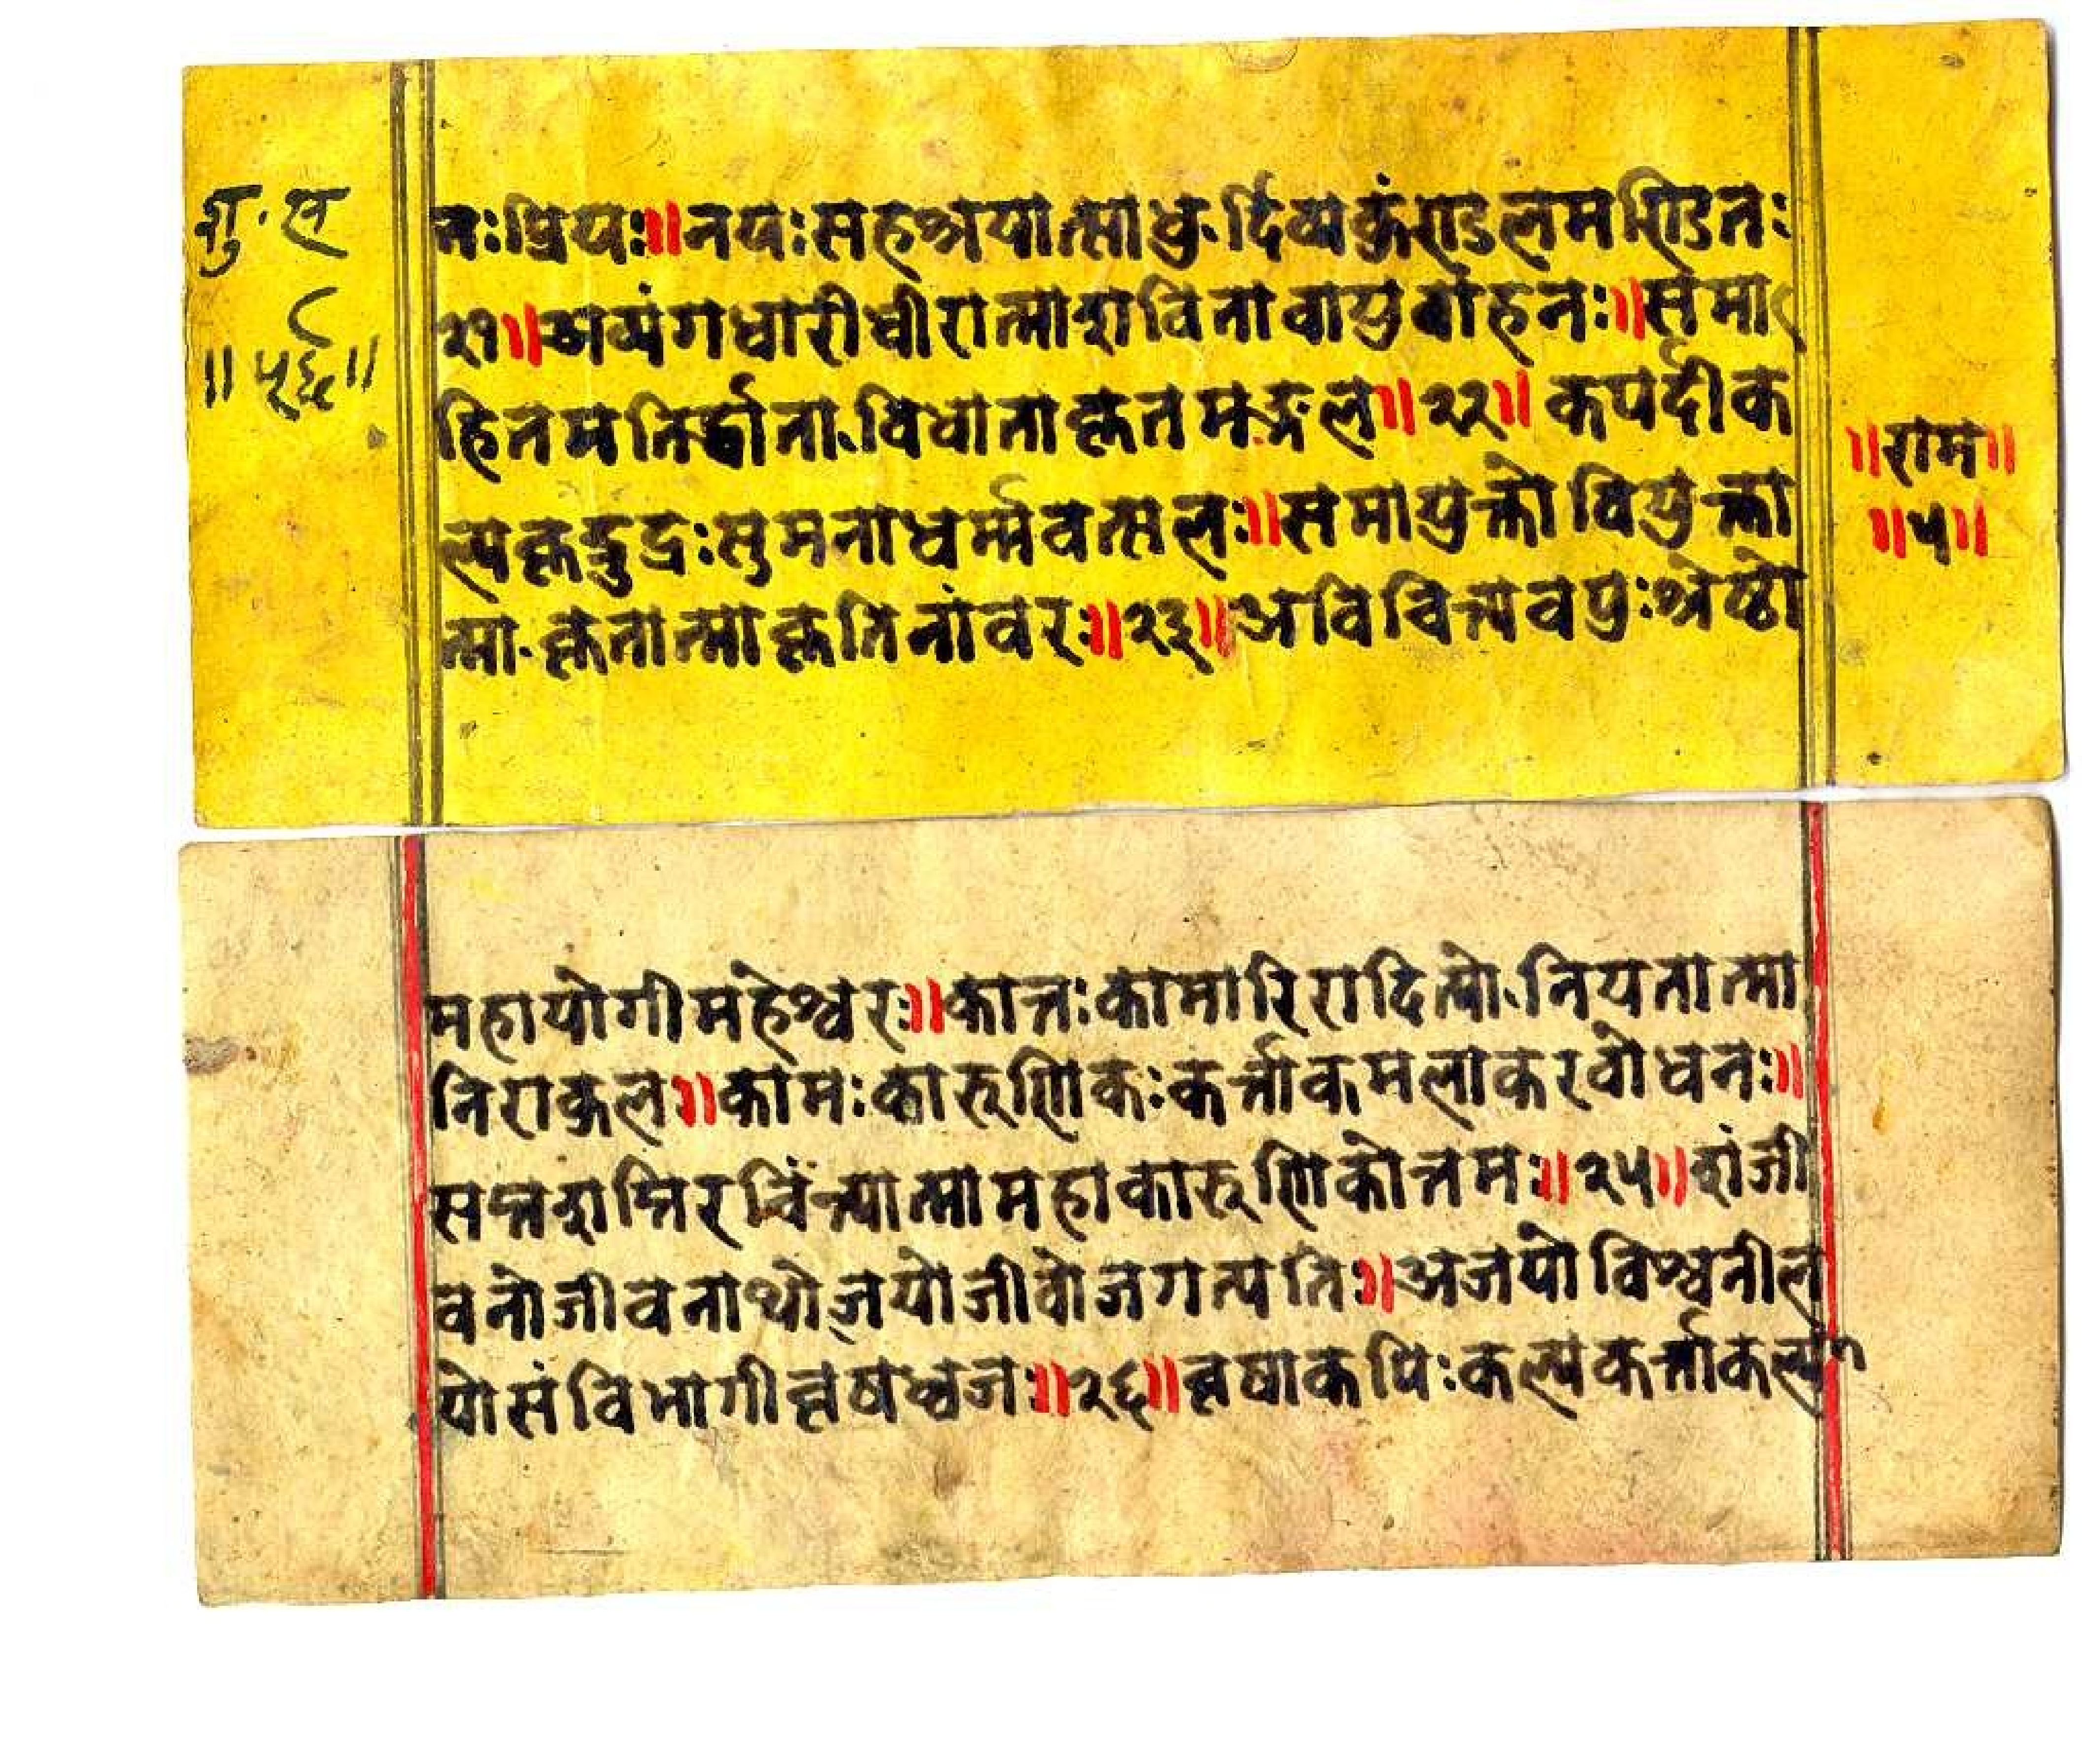 शु. स
॥ ५६ ॥
तः प्रियः॥नयः सहश्रयात्साधु. र्दिव्यकुंराडलमरिाडतः
२१॥अव्यंगधारीधीरात्माशवितावायुवाहनः॥समा
हितमतिर्द्धाता. विधाताकृतमङ्गल॥२२॥ कपर्दीक
ल्पकृद्रुद्रः सुमनाधर्म्मवत्सलः॥समायुक्तो वियुक्ता
त्मा. कृतात्माकृतिनांवरः॥२३॥अविचिन्त्यवपुः श्रेष्ठो
॥राम॥
॥५॥
महायोगीमहेश्वरः॥कान्तः कामारिरादित्यो. नियतात्मा
निराकुलः॥कामः कारुणिकः कर्त्ताकमलाकरवोधनः॥
सप्तशप्तिरचिंन्त्यात्मामहाकारुणिकोत्तमः॥२५॥शंजी
वनोजीवनाथोजयोजीवोजगत्पतिः॥अजयो विश्वनील
योसंविभागीवृषध्वजः॥२६॥वृषाकपिः कल्पकर्त्ताकल्पा